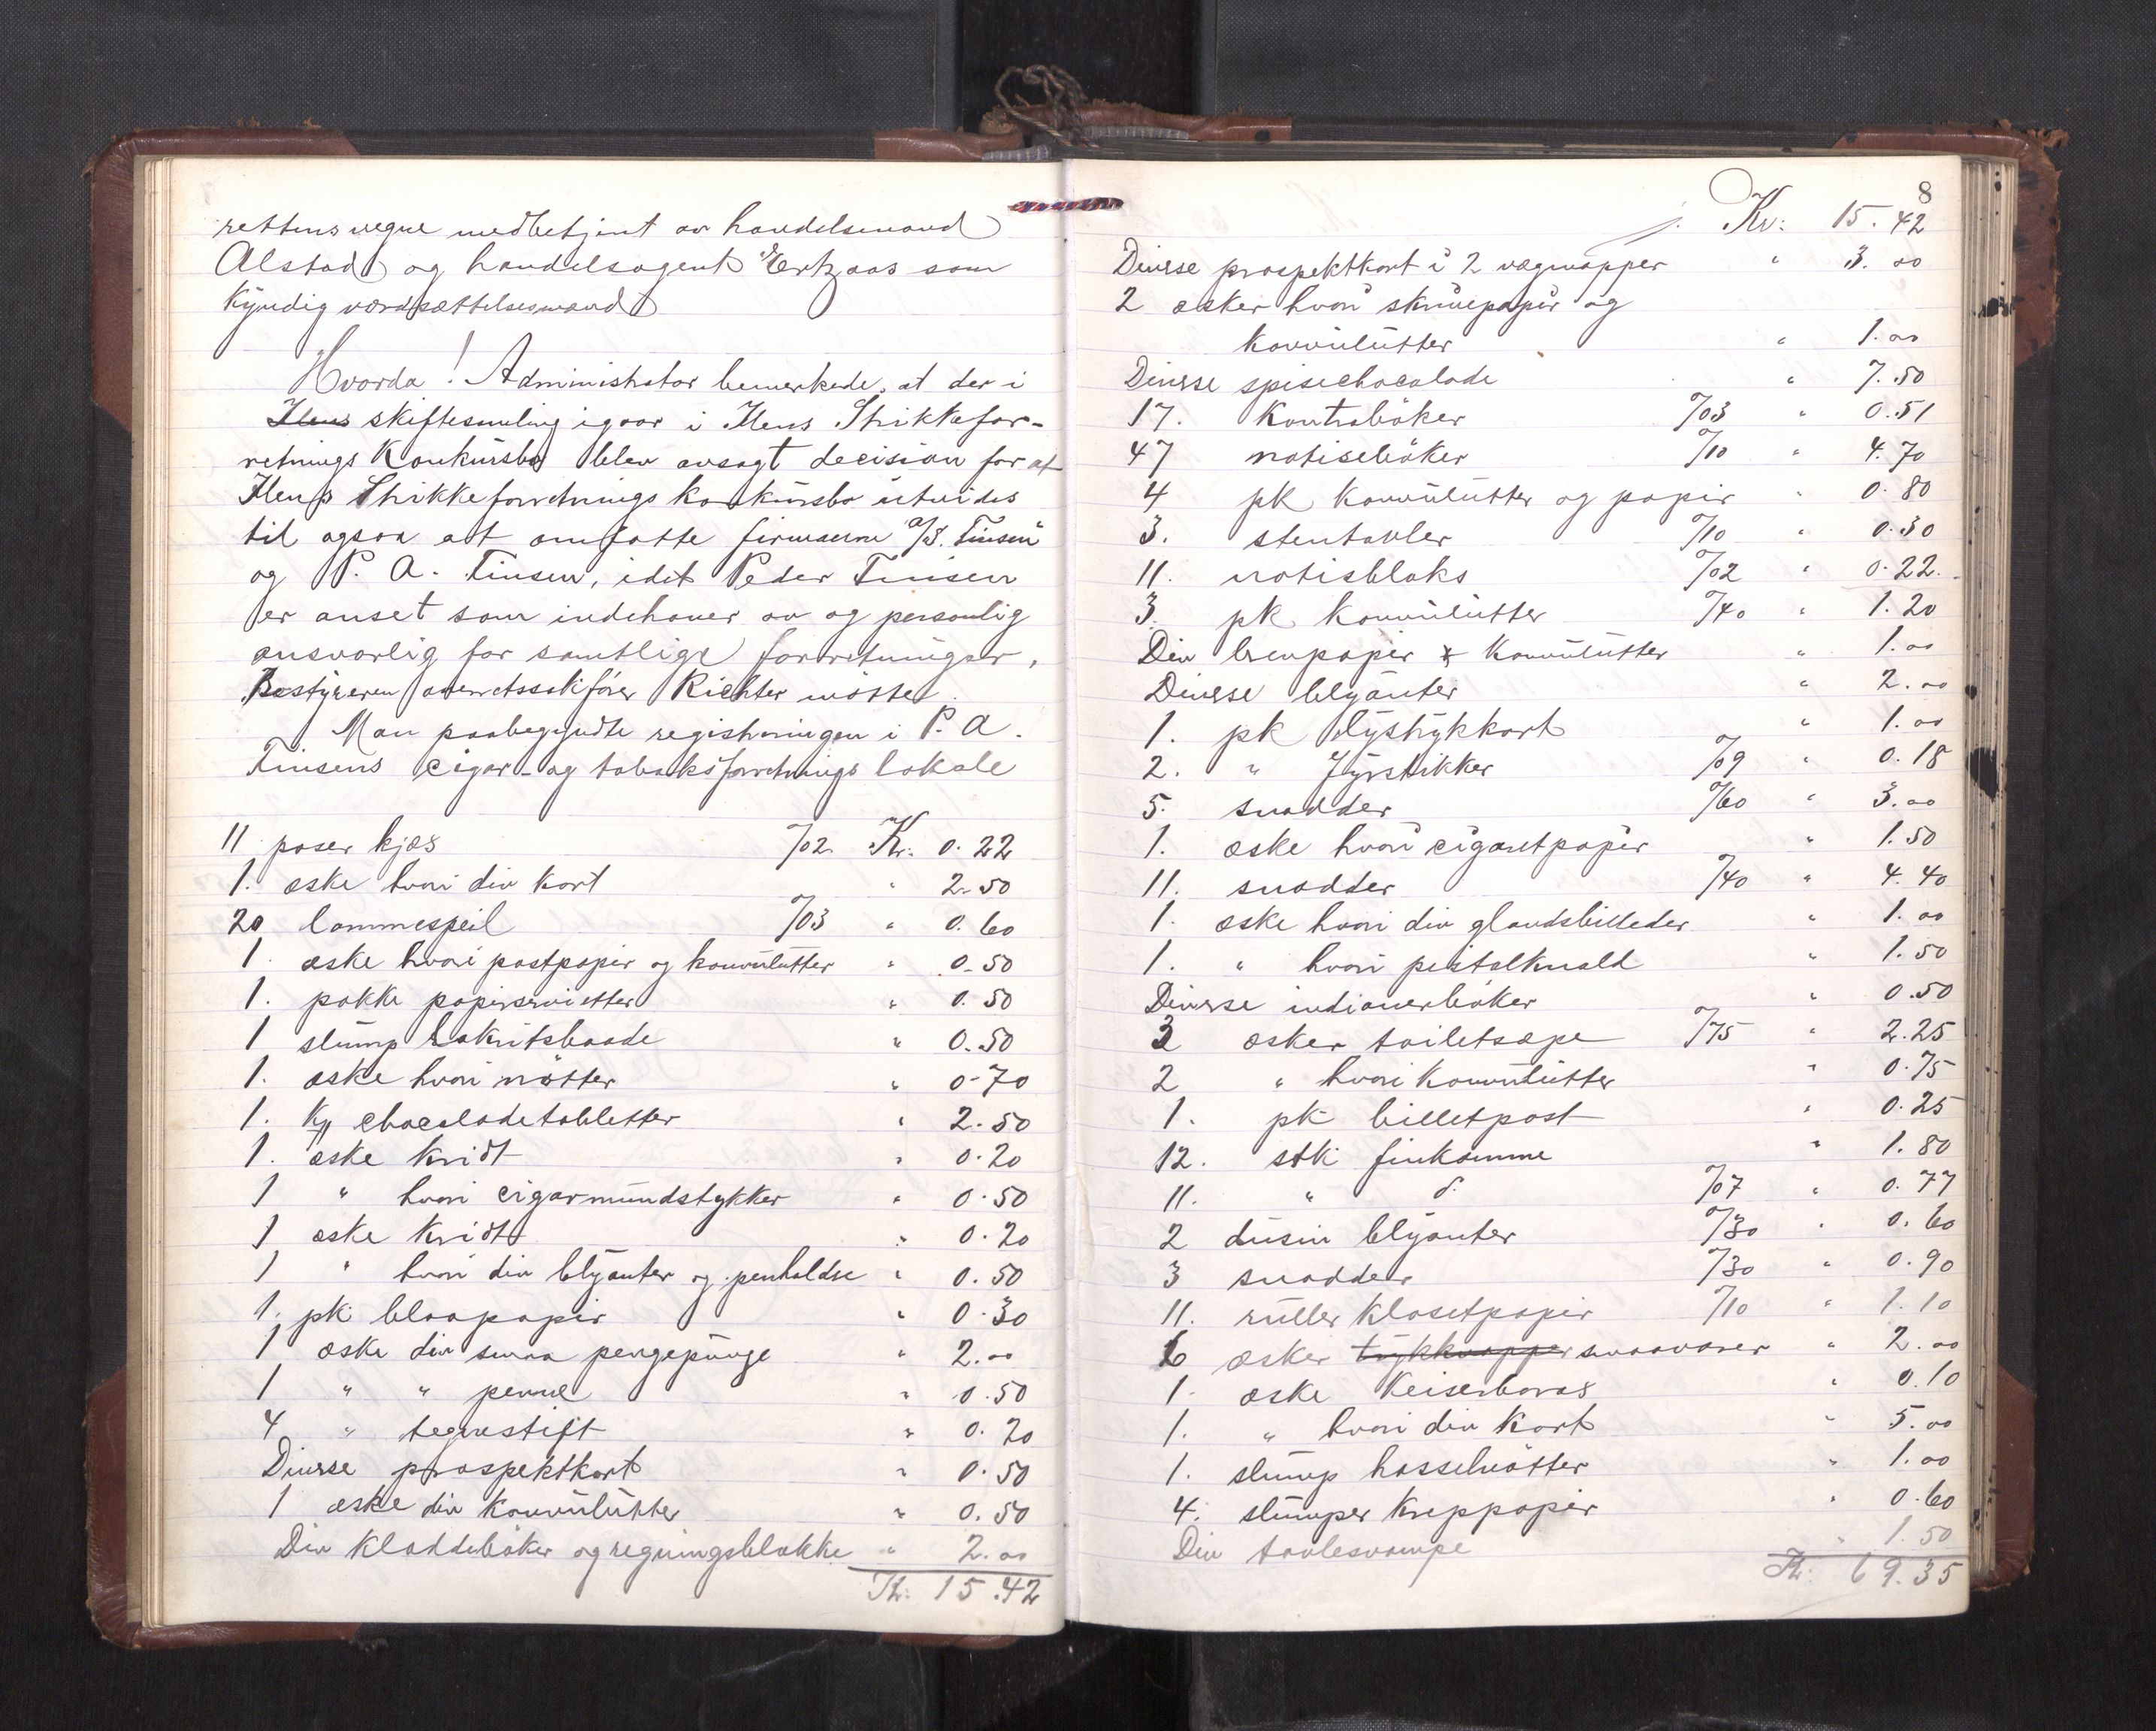 rettens vegne medbetjent av handelsmand
Alstad og handelsagent Ertzaas som
kyndig værdsættelsesmand
Hvorda! Administrator bemerkede, at der i
Ilens skiftesamling igaar i Ilens Strikkefor-
retnings Konkursbo blev avsagt decision for at
Ilens Strikkeforretnings konkursbo utvides
til ogsaa at omfatte firmaerne A/S. Tinsen
og P. A. Tinsen, idet Peder Tinsen
er anset som indehaver av og personlig
ansvarlig for samtlige forretninger.
Bestyreren overretssakfører Richter møtte.
Man paabegyndte registreringen i P. A.
Tinsens cigar- og tobaksforretnings lokale
11 poser kjæs °/02 Kr. 0.22
1. æske hvori div kort " 2.50
20 lommespeil °/03 " 0.60
1. æske hvori postpapir og konvulutter " 0.50
1. pakke papirservietter " 0.50
1 slump Lakritsbaade " 0.50
1. æske hvori nøtter " 0.70
1. Kg chocoladetabletter " 2.50
1. æske kridt " 0.20
1 " hvori cigarmundstykker " 0.50
1 æske kridt " 0.20
1 " hvori div blyanter og penholdere " 0.50
1. pk. blaapapir " 0.30
1 æske div smaa pengepunge " 2.00
1 " " penne " 0.50
4 " tegnestift " 0.20
Diverse prospektkort " 0.50
1 æske div konvulutter " 0.50
Div Kladdebøker og regningsblokke " 2.00
Kr. 15.42
8
Kr: 15.42
Diverse prospektkort i 2 vægmapper " 3.00
2 æsker hvori skrivepapir og
konvulutter " 1.00
Diverse spisechocolade " 7.50
17. Kontrabøker °/03 " 0.51
47 notisebøker °/10 " 4.70
4 pk konvulutter og papir " 0.80
3. stentavler °/10 " 0.30
11. notisbloks °/02 " 0.22
3. pk konvulutter °/40 " 1.20
Div brevpapir & Konvulutter " 1.00
Diverse blyanter " 2.00
1. pk lystrykkort " 1.00
2. " Fyrstikker °/09 " 0.18
5. snadder °/60 " 3.00
1. æske hvori cigaretpapir " 1.50
11. snadder °/40 " 4.40
1. æske hvori div glandsbilleder " 1.00
1. " hvori pistolknald " 1.50
Diverse indianerbøker " 0.50
3 æsker toiletsæpe °/75 " 2.25
2 " hvori Konvulutter " 0.75
1. pk billetpost " 0.25
12. stk finkamme " 1.80
11. " d. °/07 " 0.77
2 dusin blyanter °/30 " 0.60
3 snadder °/30 " 0.90
11. ruller Klosetpapir °/10 " 1.10
6 æsker trykknapper smaavarer " 2.00
1. æske Keiserborax " 0.10
1. " hvori div kort " 5.00
1. slump hasselnøtter " 1.00
4. slumper kreppapir " 0.60
Div tavlesvampe " 1.50
Kr. 69.35